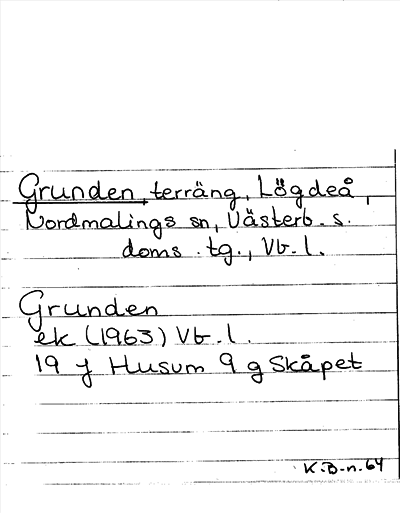 Grunden, terräng, Lögdeå,
Nordmalings sn, Västerb. s.
doms. tg., Vb. l.
Grunden
ek (1963) Vb. l.
19 J Husum 9 g Skåpet
K.B-n. 64